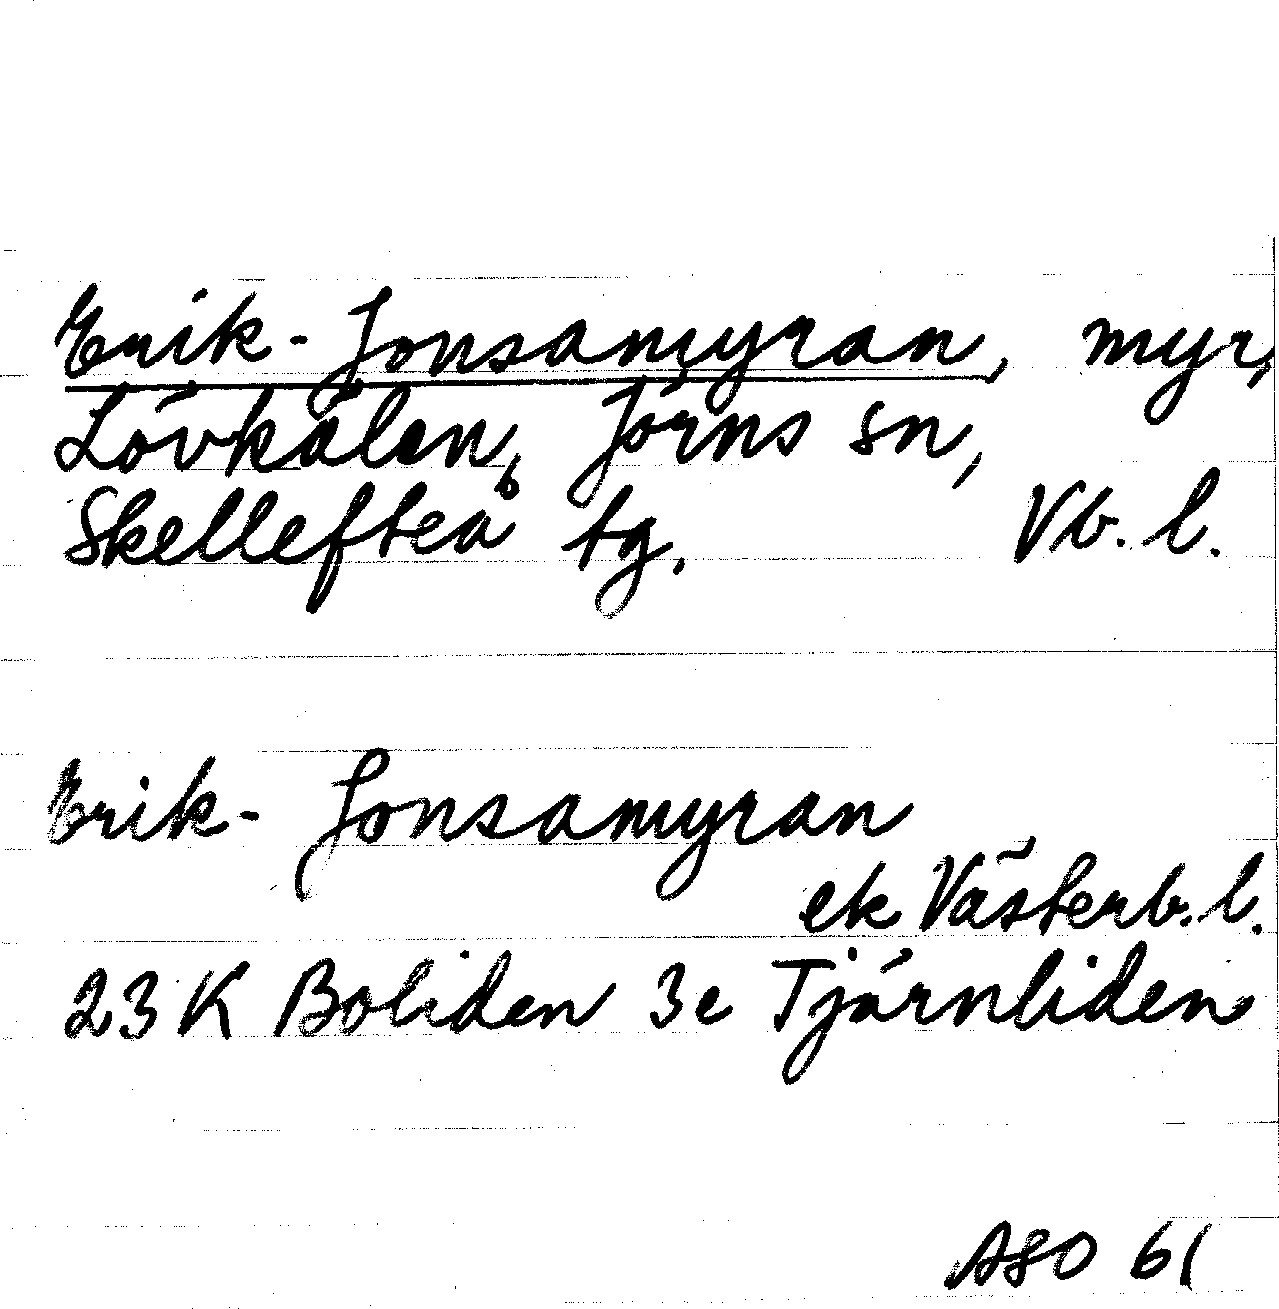 Erik-Jonsamyran, myr,
Lövkälen, Jörns sn,
Skellefteå tg. Vb. l.
Erik- Jonsamyran
ek Västerb. l.
23 K Boliden 3e Tjärnliden
ASO 61